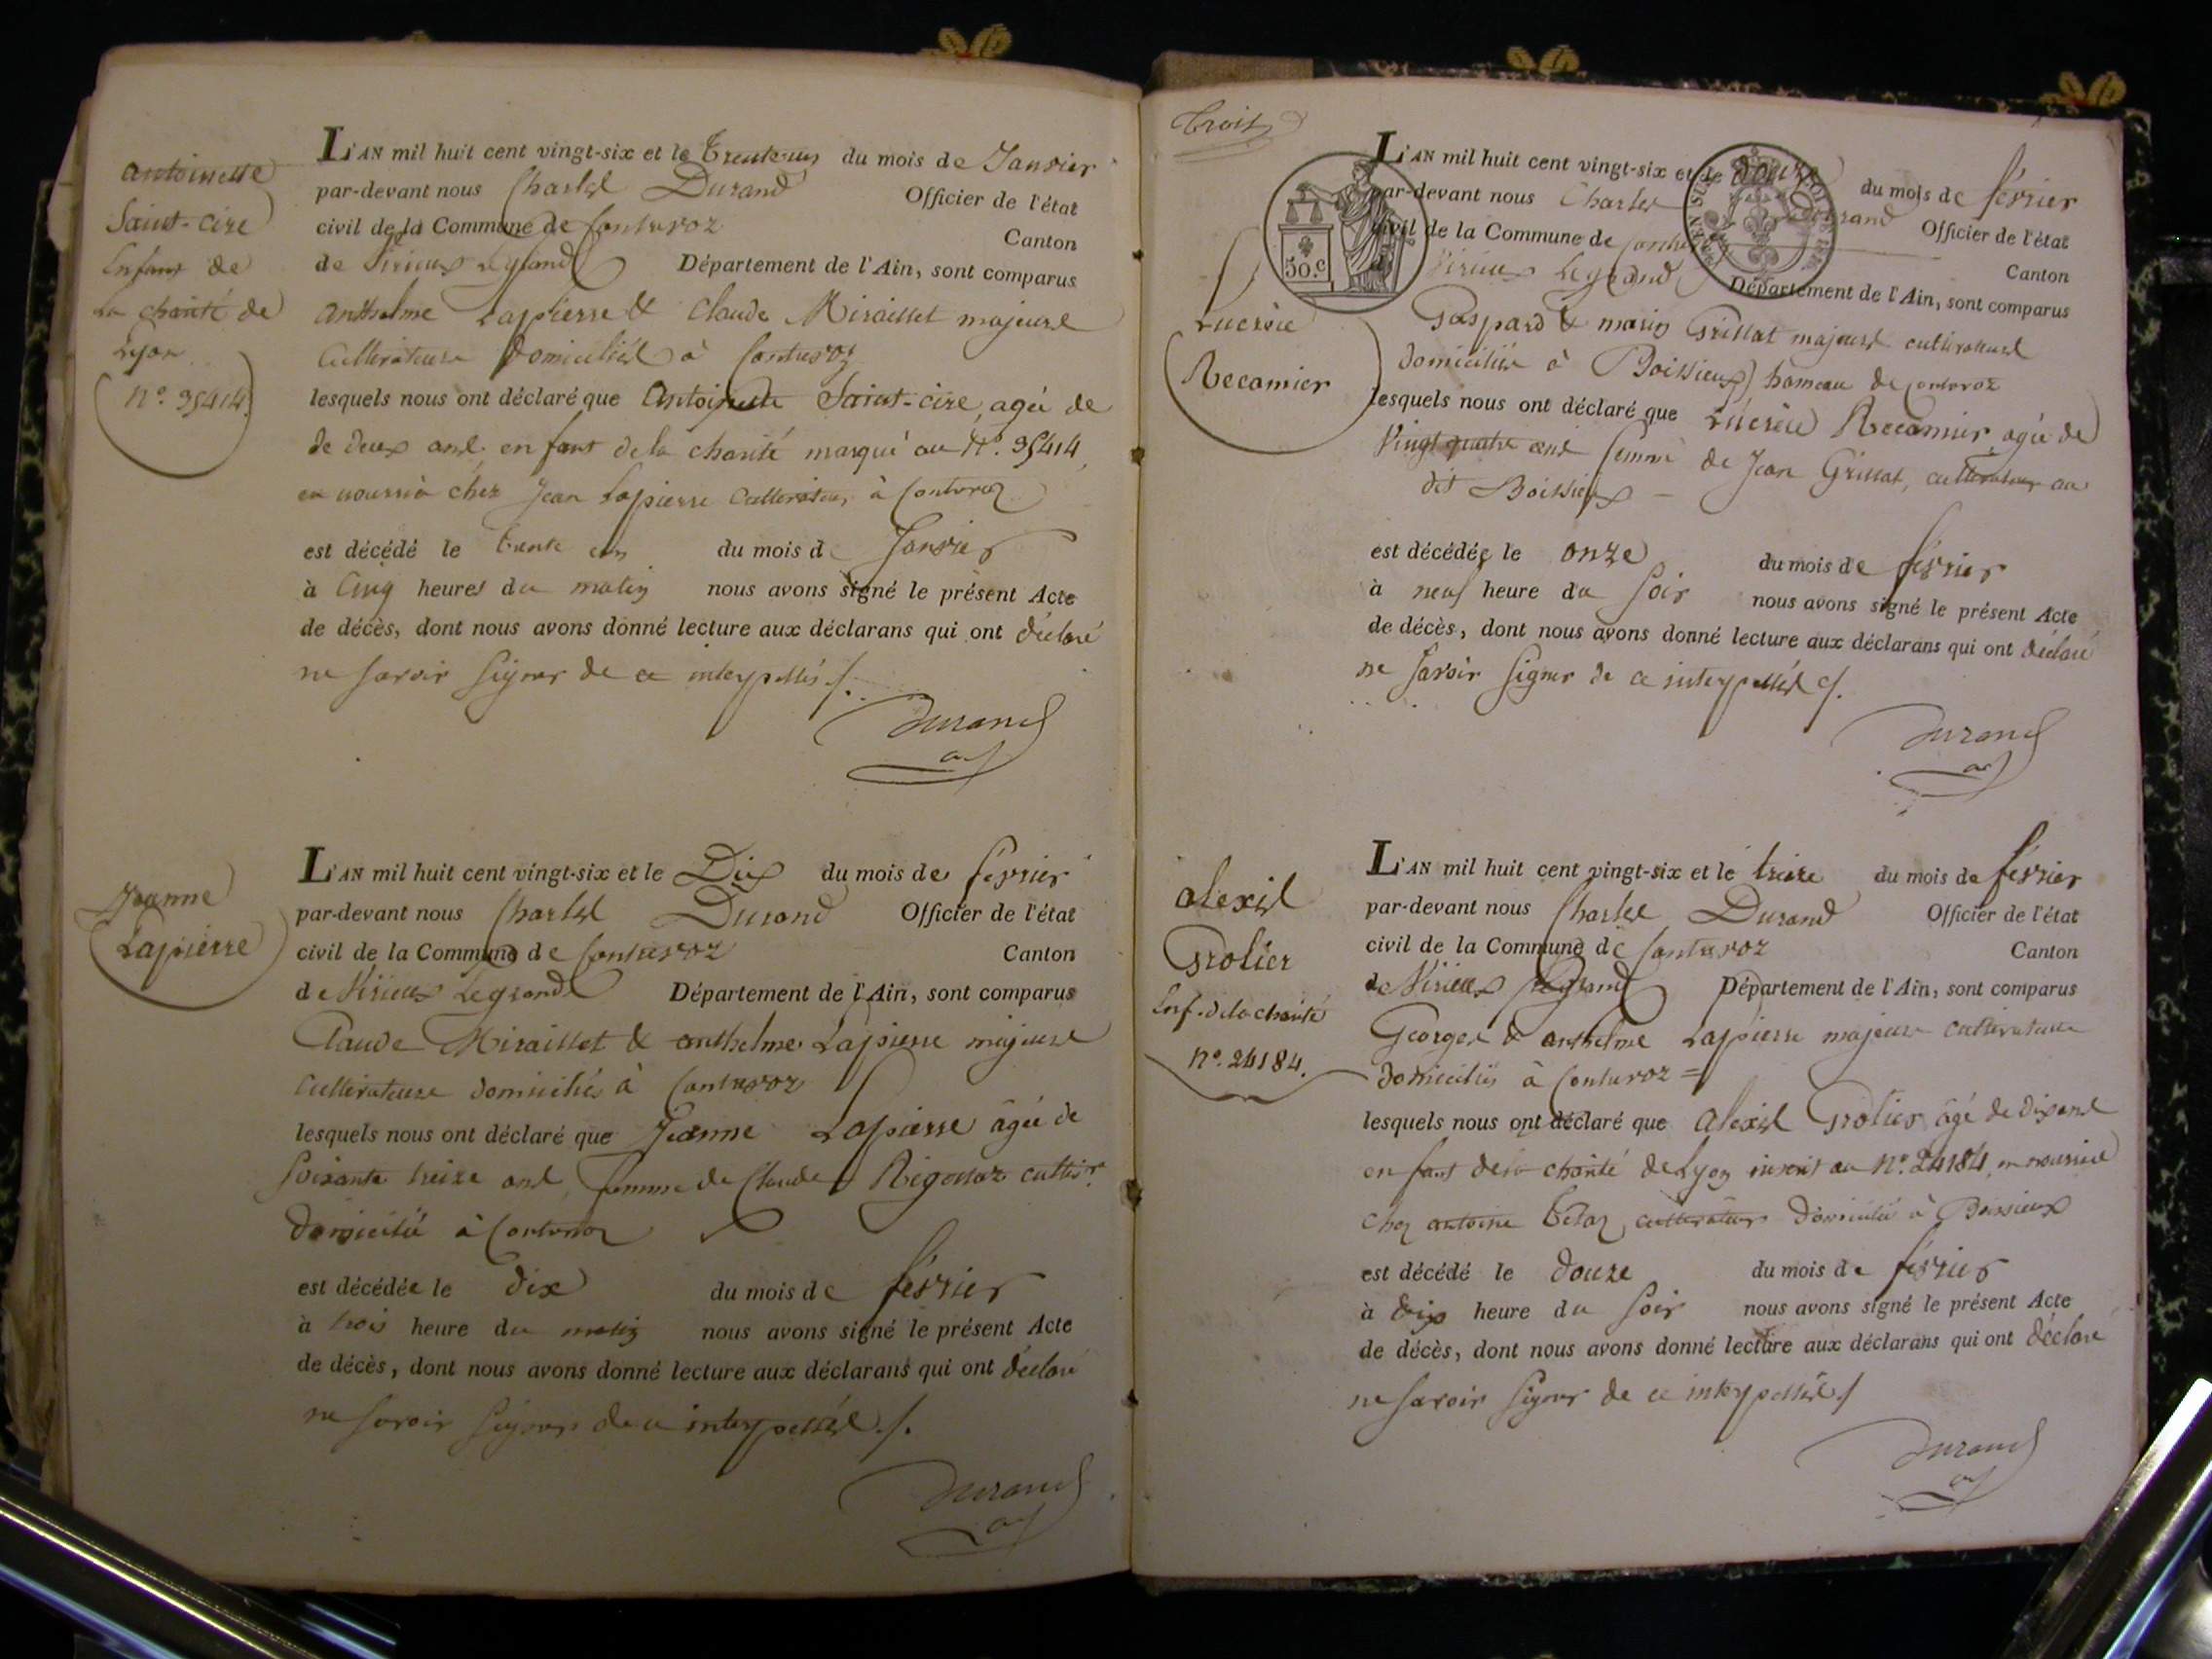 antoinette
Saint-cire
Enfant de
La charité de
Lyon
N.º 35414.
L'AN mil huit cent vingt-six et le trente un du mois de Janvier
par-devant nous Charles Durand Officier de l'état
civil de la Commune de Contrevoz Canton
de Virieux Legrand Département de l'Ain, sont comparus
anthelme Lapierre & Claude Miraillet majeurs
Cultivateurs domiciliés à Contrevoz
lesquels nous ont déclaré que Antoinette Saint-cire, agée de
de deux ans enfant de la charité marqué au N.º 35414
en nourrice chéz Jean Lapierre Cultivateur à Contrevoz
est décédé le trente un du mois de Janvier
à Cinq heures du matin nous avons signé le présent Acte
de décès, dont nous avons donné lecture aux déclarans qui ont déclaré
ne savoir signer de ce interpellés ./.
Durand
Jeanne
Lapierre
L'AN mil huit cent vingt-six et le Dix du mois de février
par-devant nous Charles Durand Officier de l'état
civil de la Commune de Contrevoz Canton
de Virieux Legrand Département de l'Ain, sont comparus
Claude Miraillet & anthelme Lapierre majeurs
Cultivateurs domiciliés à Contrevoz
lesquels nous ont déclaré que Jeanne Lapierre âgée de
soixante treize ans femme de Claude Rigottaz cultivr.
domicilié à Contrevoz
est décédée le dix du mois de février
à trois heure du matin nous avons signé le présent Acte
de décès, dont nous avons donné lecture aux déclarans qui ont déclaré
ne savoir signer de ce interpellés ./.
Durand
Trois
50.c
Lucrèce
Recamier
L'AN mil huit cent vingt-six et le douze du mois de février
par-devant nous Charles Durand Officier de l'état
civil de la Commune de Contrevoz Canton
de Virieux Legrand Département de l'Ain, sont comparus
Gaspard & marin Grillat majeurs cultivateurs
domiciliés à Boissieux hameau de Contrevoz
lesquels nous ont déclaré que Lucrèce Recamier agée de
Vingt quatre ans femme de Jean Grillat, cultivateur au
dit Boissieux
est décédée le onze du mois de février
à neuf heure du soir nous avons signé le présent Acte
de décès, dont nous avons donné lecture aux déclarans qui ont déclaré
ne savoir signer de ce interpellés ./.
Durand
alexis
Grolier
Enf. de la charité
N.º 24184.
L'AN mil huit cent vingt-six et le treize du mois de février
par-devant nous Charles Durand Officier de l'état
civil de la Commune de Contrevoz Canton
de Virieux Legrand Département de l'Ain, sont comparus
Georges & anthelme Lapierre majeurs cultivateurs
domiciliés à Contrevoz =
lesquels nous ont déclaré que alexis Grolier âgé de dix ans
enfant de la charité de Lyon inscrit au N.º 24184 en nourrice
chez antoine cultivateur domicilié à Boissieux
est décédé le douze du mois de février
à dix heure du soir nous avons signé le présent Acte
de décès, dont nous avons donné lecture aux déclarans qui ont déclaré
ne savoir signer de ce interpellés ./
Durand